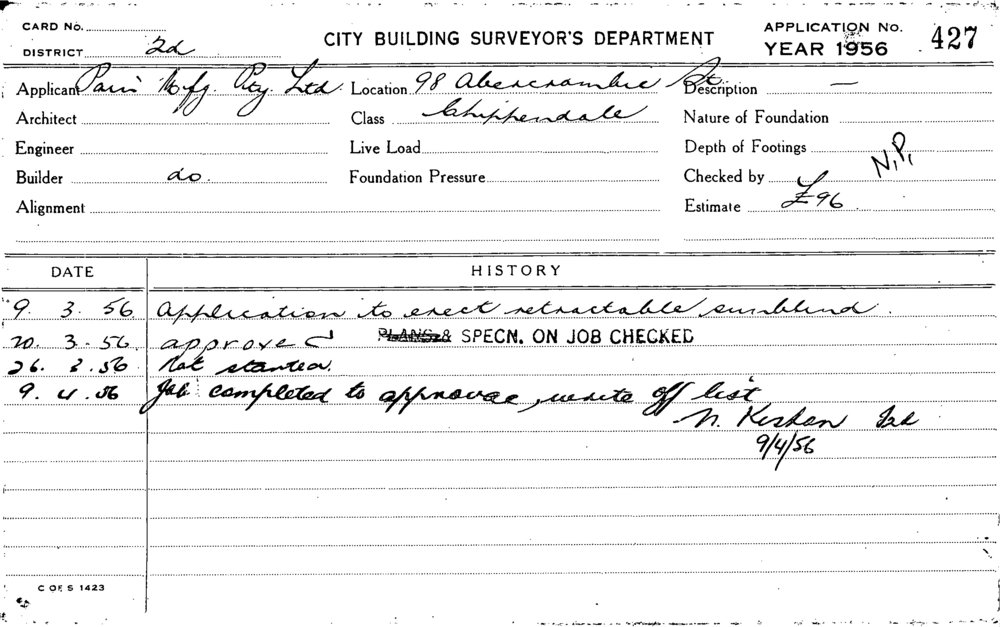 CARD No.
DISTRICT 2d
CITY BUILDING SURVEYOR'S DEPARTMENT
APPLICATION No. 427
YEAR 1956
Applicant Mfg. Pty. Ltd. Location 98 Abercrombie St Description —
Architect Class Chippendale Nature of Foundation
Engineer Live Load Depth of Footings
Builder do. Foundation Pressure Checked by N.P.
Alignment Estimate £96
DATE HISTORY
9. 3. 56 Application to erect retractable sunblind.
20. 3. 56 approved PLANS & SPECN. ON JOB CHECKED
26. 3. 56 Not started.
9. 4. 56 Job completed to approval, write off list
N.
9/4/56
C OF S 1423